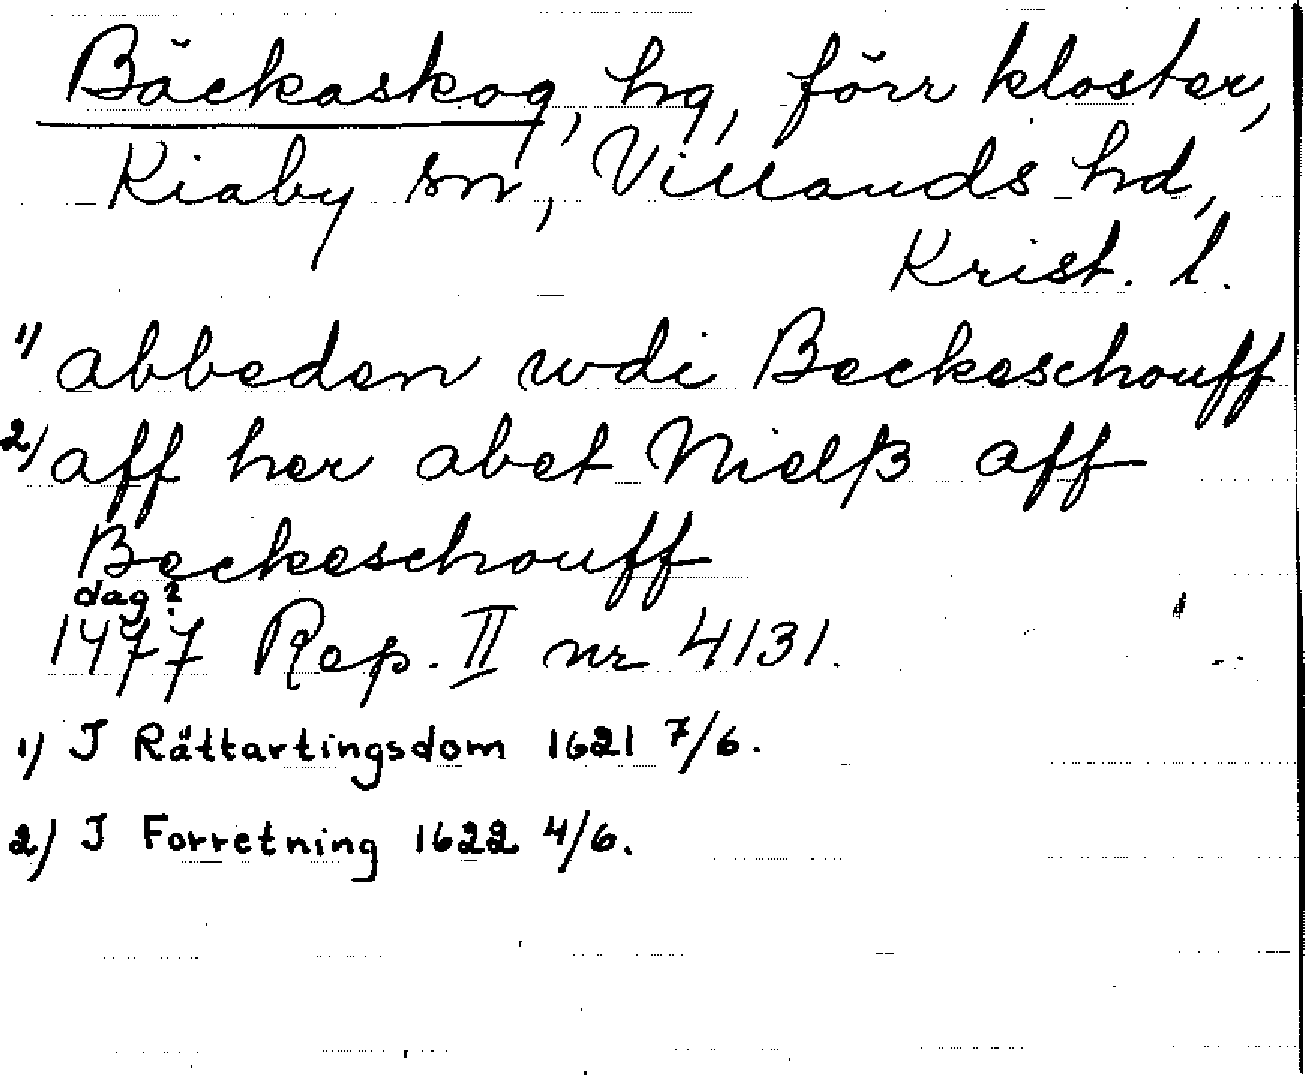 Bäckaskog, hg, förr kloster,
Kiaby sn, Villands hd,
Krist. l.
1) abbeden wdi Beckeschouff
2) aff her abet Nielß aff
Beckeschouff
dag?
1477 Rep. II nr 4131.
1) I Rättartingsdom 1621 7/6.
2) I Forretning 1622 4/6.